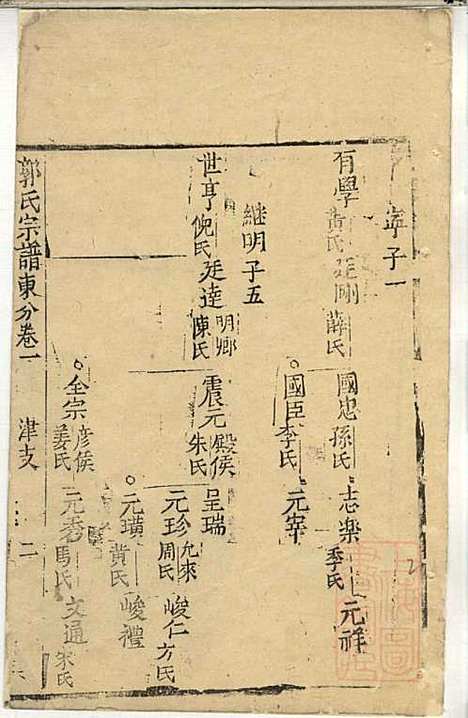 年子一
有學 黃氏 廷剛 薛氏
國忠 孫氏 志樂 季氏 元祥
國臣 李氏 元宰
繼明子五
世亨 倪氏 廷達 明卿 陳氏
震元 殿侯 朱氏 呈瑞
元珍 允來 周氏 峻仁 方氏
元璜 黃氏 峻禮
全宗 彥侯 姜氏
元秀 馬氏 文通 宋氏
郭氏宗譜東分卷一 津支 二